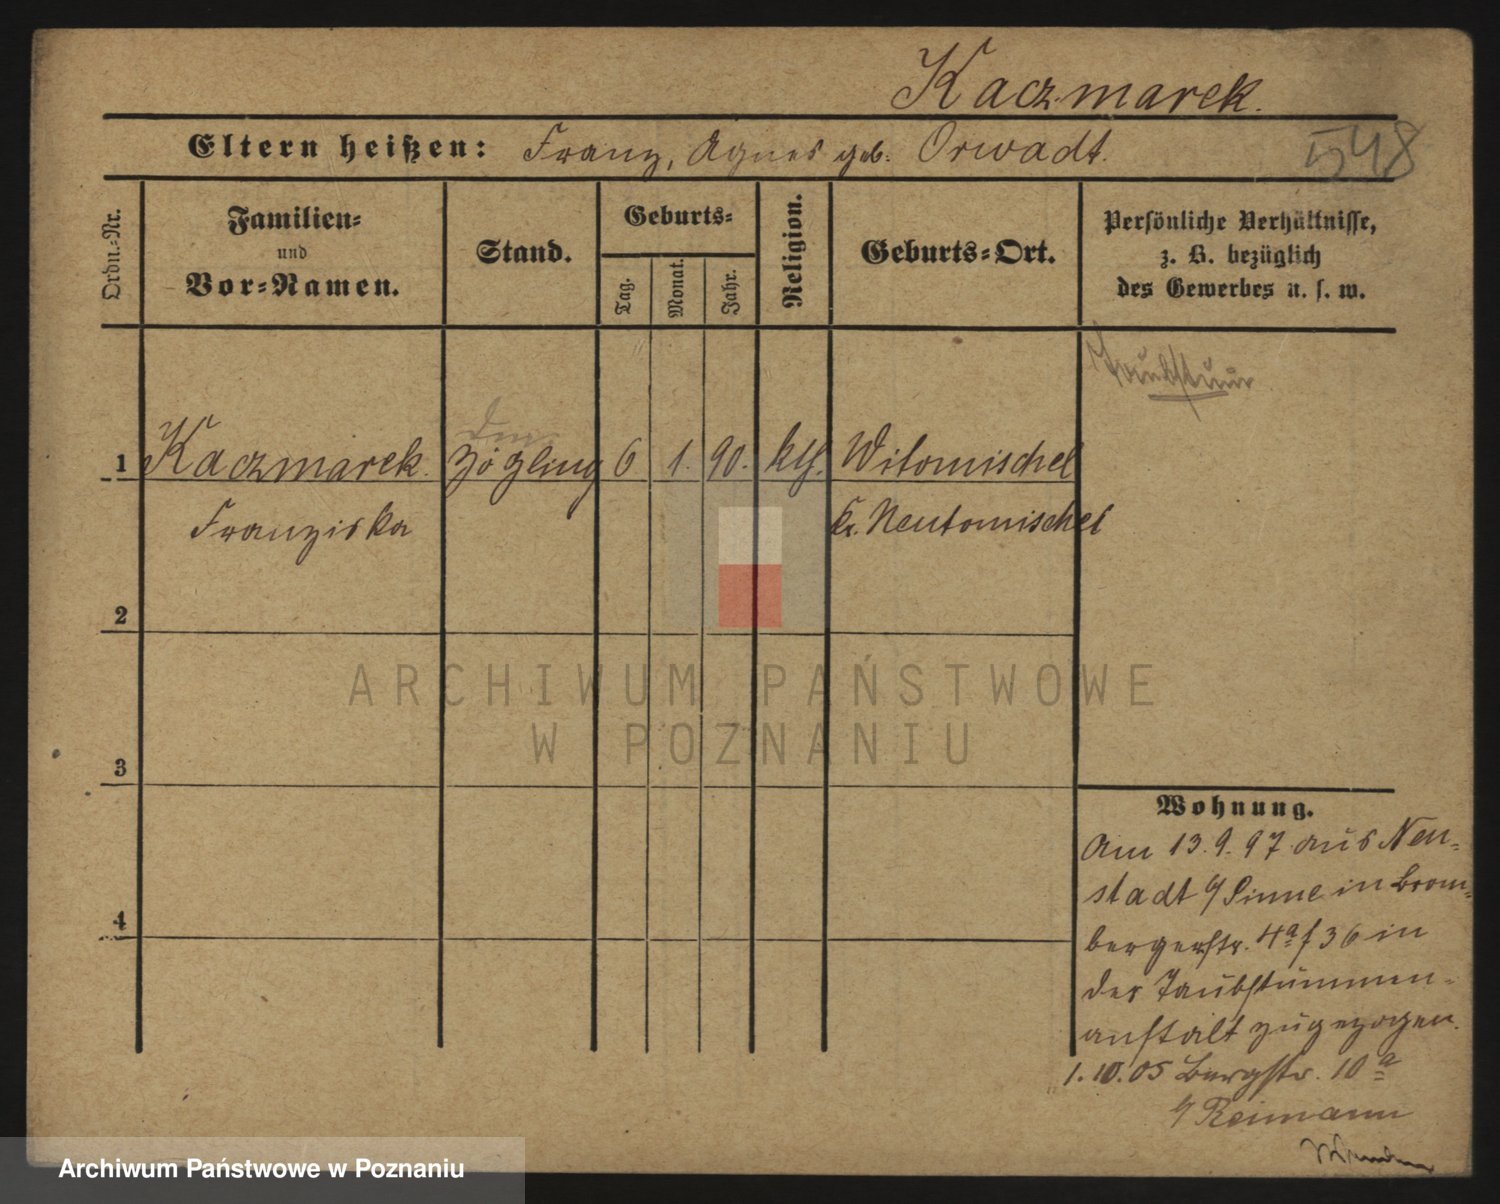 Kaczmarek.
Eltern heißen: Franz, Agnes geb. Orwadt.
48
Ordn.-Nr.
Familien-
und
Vor-Namen.
Stand.
Geburts-
Tag.
Monat.
Jahr.
Religion.
Geburts-Ort.
Persönliche Verhältnisse,
z. B. bezüglich
des Gewerbes u. s. w.
Taubstum
1 Kaczmarek. Zögling 6 1. 90. kth. Witomischel
Franziska Kr. Neutomischel
2
3
4
Wohnung.
Am 13.9.97 aus Neu-
stadt b/ Pinne in Brom-
bergerstr. 4a 36 in
der Taubstummen-
anstalt zugezogen.
1.10.05 Bergstr. 10a
b/ Reimann
ARCHIWUM PAŃSTWOWE
W POZNANIU
Archiwum Państwowe w Poznaniu